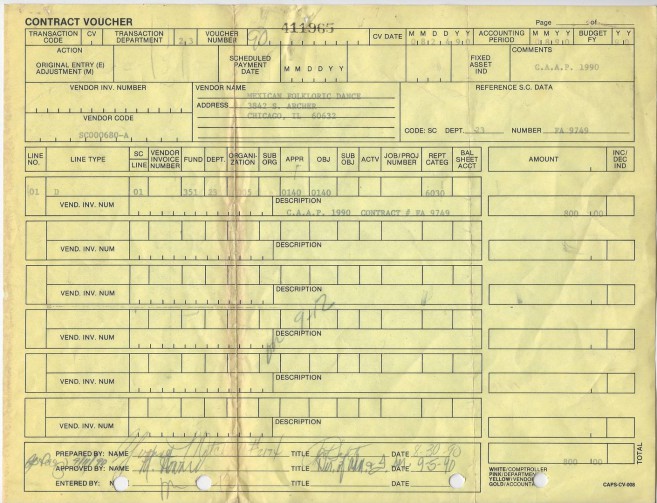 CONTRACT VOUCHER
Page of
TRANSACTION CODE CV TRANSACTION DEPARTMENT 23 VOUCHER NUMBER 90 411965 CV DATE M M D D Y Y ACCOUNTING PERIOD M M Y Y BUDGET FY Y Y
ACTION
ORIGINAL ENTRY (E)
ADJUSTMENT (M)
SCHEDULED PAYMENT DATE M M D D Y Y
FIXED ASSET IND
COMMENTS
C.A.A.P. 1990
VENDOR INV. NUMBER
VENDOR CODE
SC000680-A
VENDOR NAME MEXICAN FOLKLORIC DANCE
ADDRESS 3842 S. ARCHER
CHICAGO, IL 60632
REFERENCE S.C. DATA
CODE: SC DEPT. 23 NUMBER FA 9749
LINE NO. LINE TYPE SC LINE VENDOR INVOICE NUMBER FUND DEPT. ORGANI-ZATION SUB ORG APPR OBJ SUB OBJ ACTV JOB/PROJ NUMBER REPT CATEG BAL SHEET ACCT AMOUNT INC/DEC IND
01 D 01 351 23 0140 0140 6030
VEND. INV. NUM DESCRIPTION
C.A.A.P. 1990 CONTRACT # FA 9749 800 00
VEND. INV. NUM DESCRIPTION
VEND. INV. NUM DESCRIPTION
VEND. INV. NUM DESCRIPTION
VEND. INV. NUM DESCRIPTION
VEND. INV. NUM
PREPARED BY: NAME TITLE DATE 8-30-90
APPROVED BY: NAME TITLE DATE 9-5-90
ENTERED BY: NAME TITLE DATE
800 00
TOTAL
WHITE/COMPTROLLER
PINK/DEPARTMENT
YELLOW/VENDOR
GOLD/ACCOUNTA
CAPS-CV-008